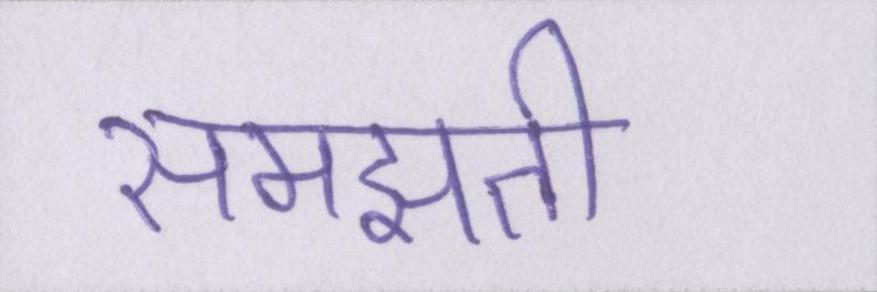 समझती